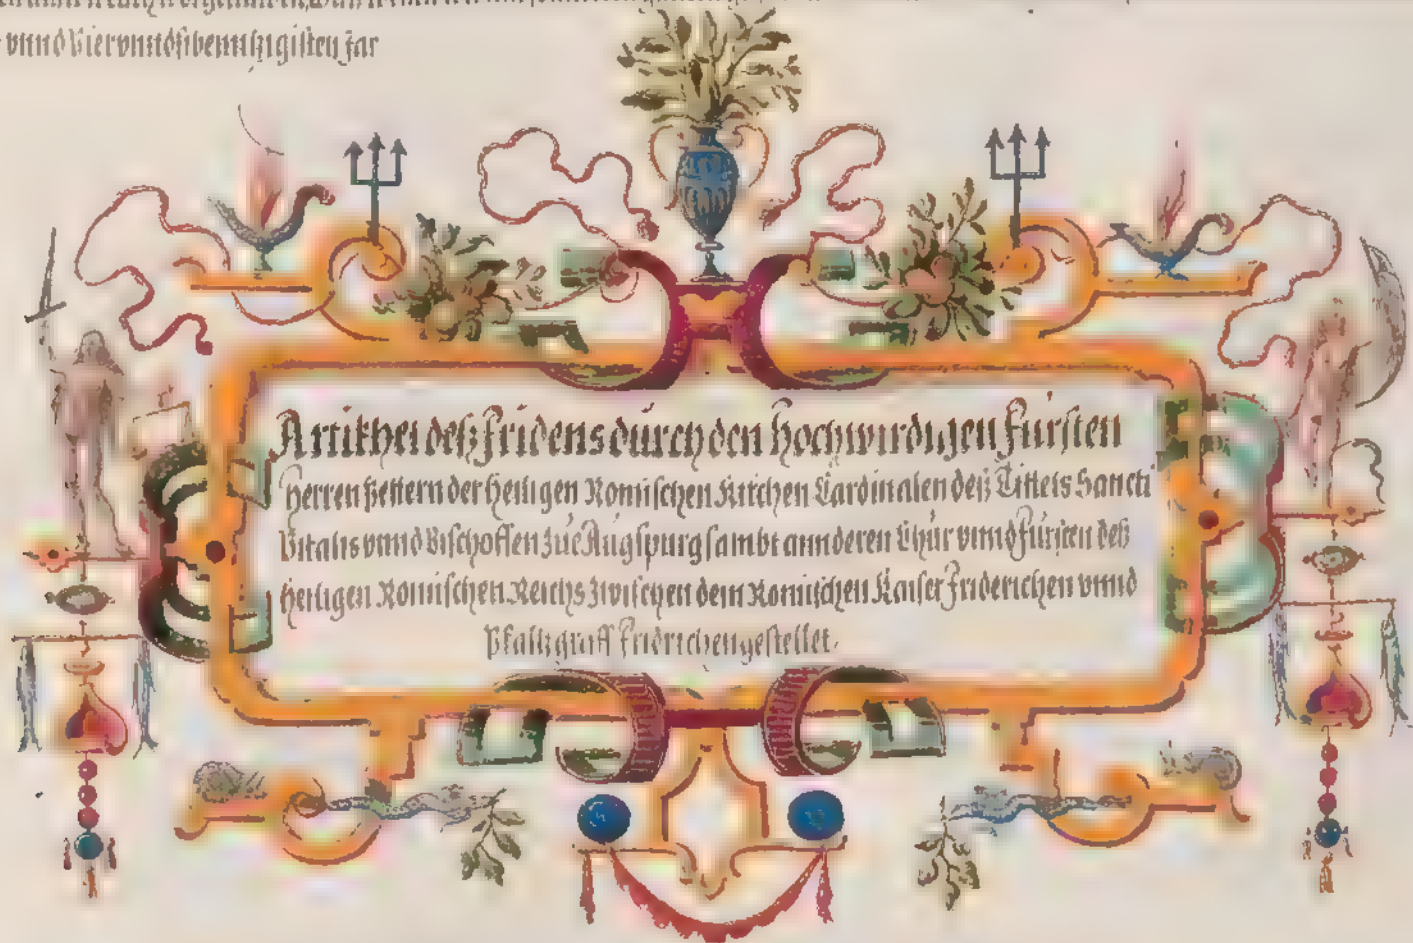 vnnd Viervnndsibenntzigisten Jar
Artikhel deß Fridens durch den Hochwirdigen Fürsten
Herren Pettern der Heiligen Romischen Kirchen Cardinalen deß Tittels Sancti
Vitalis vnnd Bischoffen zue Augspurg sambt annderen Chur vnnd Fürsten deß
Heiligen Romischen Reichs zwischen dem Romischen Kaiser Friderichen vnnd
Pfaltzgraff Fridrichen gestellet.